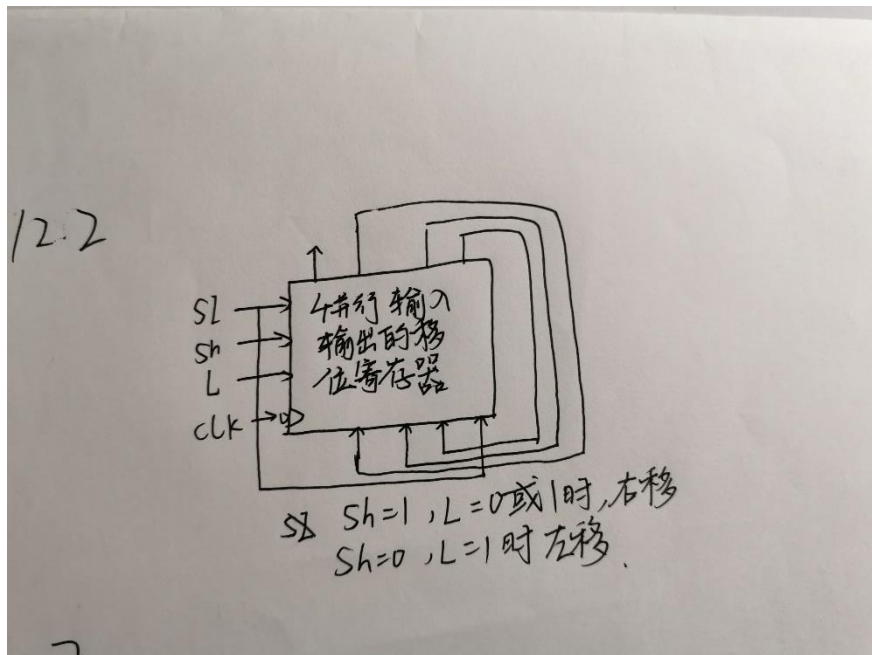 12.2
SI
Sh
L
CLK
4并行输入
输出的移
位寄存器
Sh=1,L=0或1时,右移
Sh=0,L=1时左移.